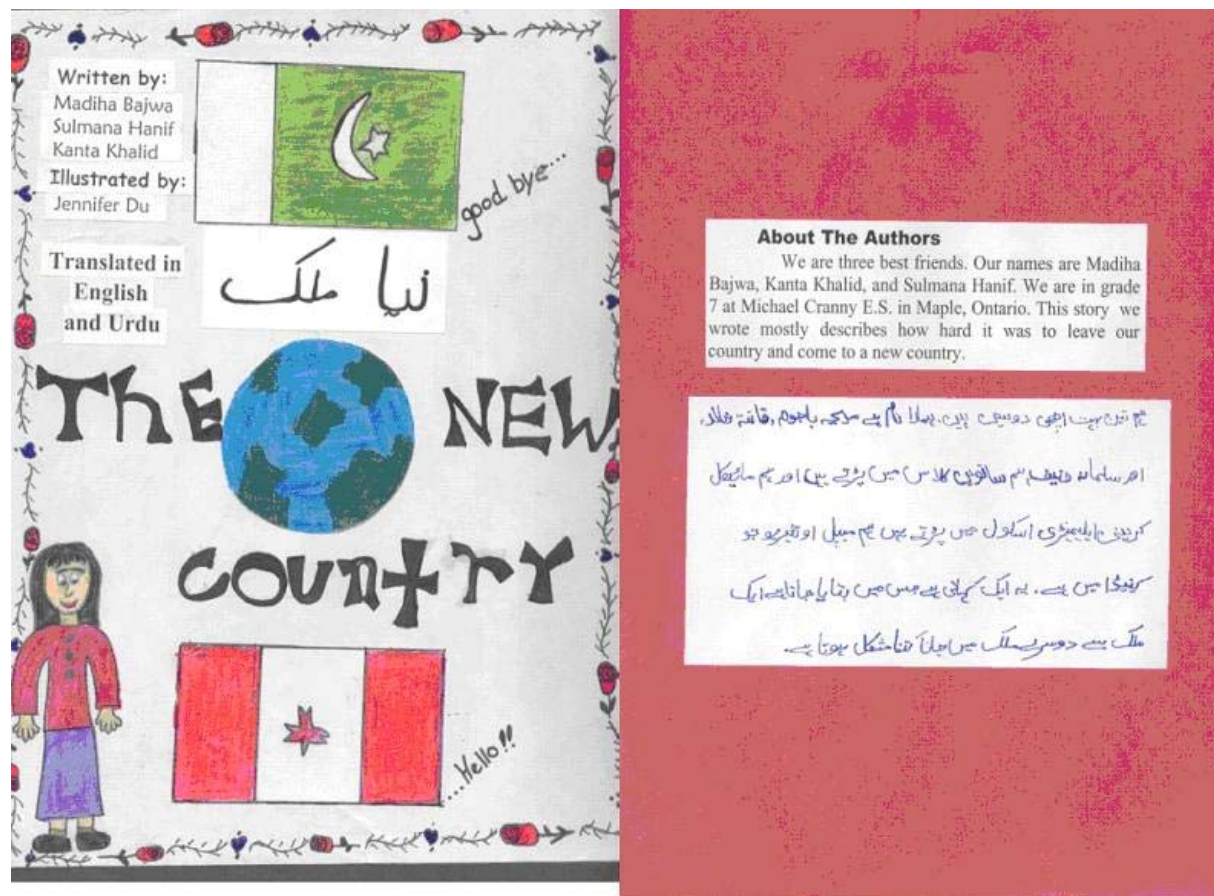 Written by:
Madiha Bajwa
Sulmana Hanif
Kanta Khalid
Illustrated by:
Jennifer Du
good bye...
Translated in
English
and Urdu
نیا ملک
The New
Country
...Hello!!
About The Authors
We are three best friends. Our names are Madiha
Bajwa, Kanta Khalid, and Sulmana Hanif. We are in grade
7 at Michael Cranny E.S. in Maple, Ontario. This story we
wrote mostly describes how hard it was to leave our
country and come to a new country.
ہم تین بہت اچھی دوستیں ہیں۔ ہمارا نام ہے
اور سلمانہ حنیف ہم ساتویں کلاس میں پڑتے ہیں اور ہم مائیکل
کرینی ایلیمنٹری اسکول میں پڑتے ہیں ہم میپل اونٹیریو جو
کینیڈا میں ہے۔ یہ ایک کہانی ہے جس میں بتایا جاتا ہے ایک
ملک سے دوسرے ملک میں جانا کتنا مشکل ہوتا ہے۔